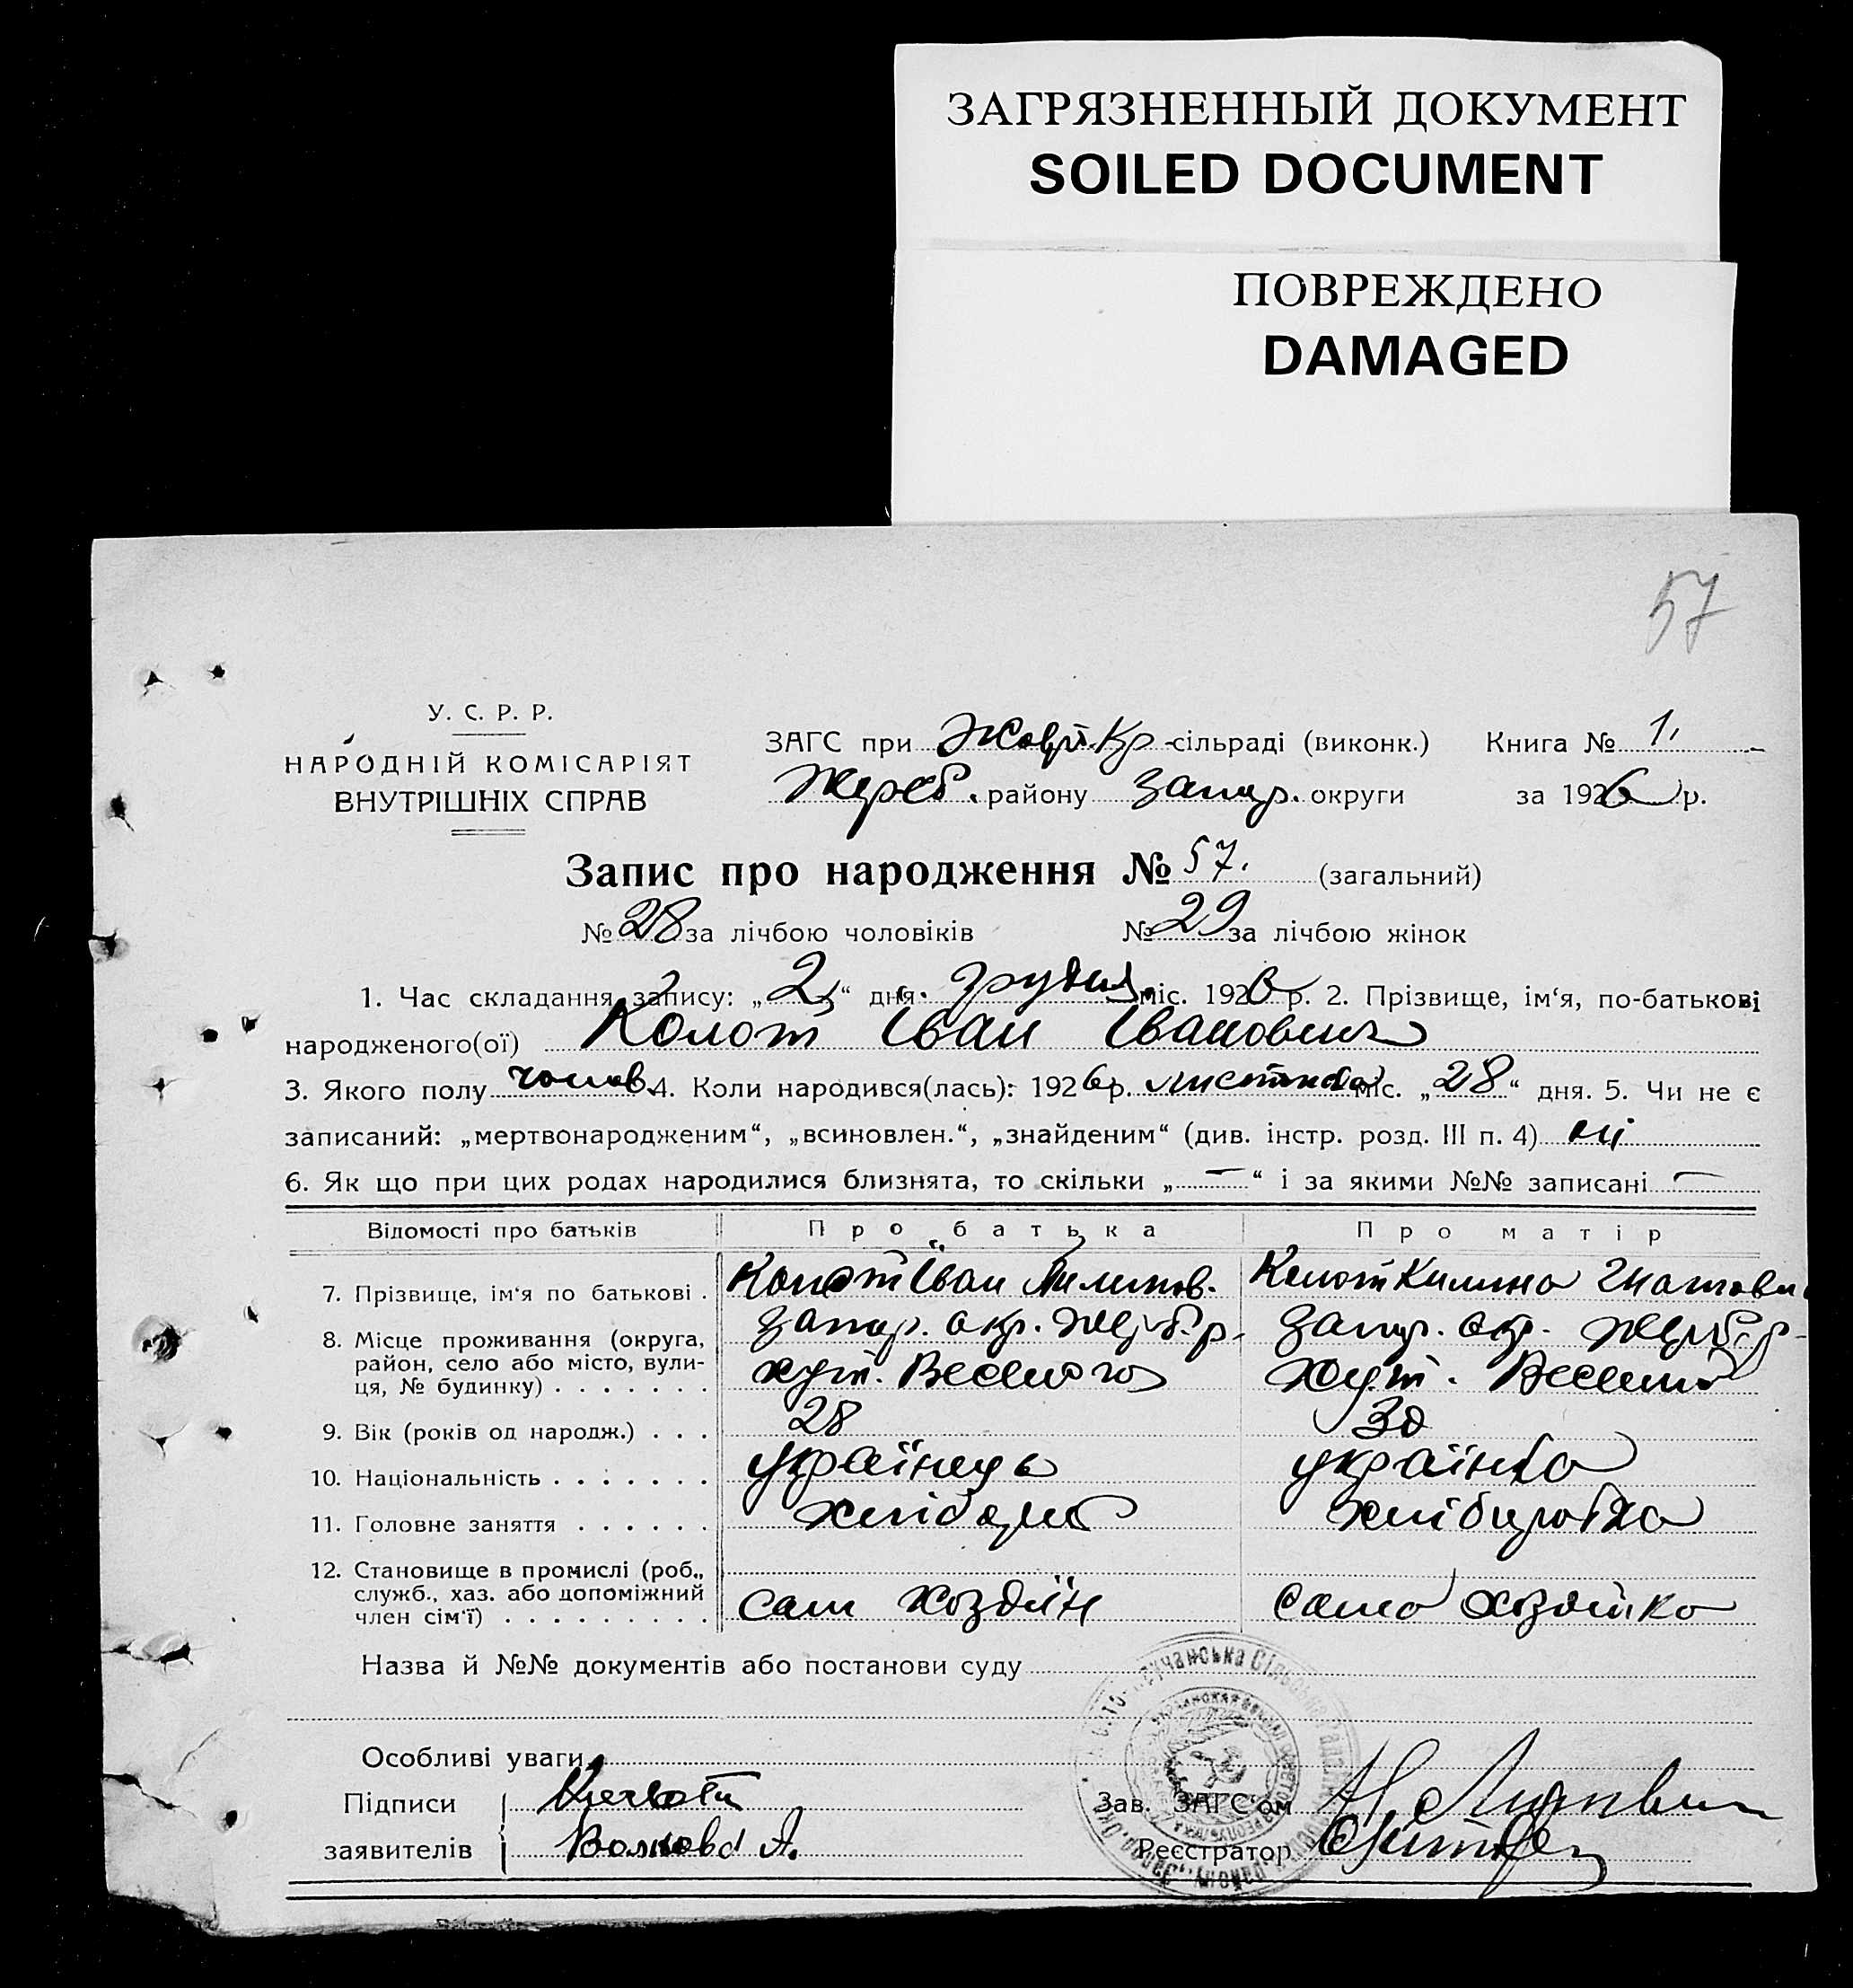 ЗАГРЯЗНЕННЫЙ ДОКУМЕНТ
SOILED DOCUMENT
ПОВРЕЖДЕНО
DAMAGED
57
У. С. Р. Р.
НАРОДНІЙ КОМІСАРІЯТ
ВНУТРІШНІХ СПРАВ
ЗАГС при Жовт. Кр сільраді (виконк.) Книга № 1.
Жереб. району Запор. округи за 1926 р.
Запис про народження № 57. (загальний)
№ 28 за лічбою чоловіків № 29 за лічбою жінок
1. Час складання запису: „ 2 “ дня грудня міс. 1926 р. 2. Прізвище, ім‘я, по-батькові
народженого(ої) Колот Іван Іванович
3. Якого полу чолов. 4. Коли народився(лась): 1926 р. листопада міс. „ 28 “ дня. 5. Чи не є
записаний: „мертвонародженим“, „всиновлен.“, „знайденим“ (див. інстр. розд. III п. 4) ні
6. Як що при цих родах народилися близнята, то скільки „ — “ і за якими №№ записані —
Відомості про батьків Про батька Про матір
7. Прізвище, ім‘я по батькові . Колот Іван Колот Килина
8. Місце проживання (округа, Запор. окр. Жереб. р. Запор. окр. Жереб. р.
район, село або місто, вули-
ця, № будинку) . . . . . . . хут. Веселого хут. Веселий
9. Вік (років од народж.) . . . 28 30
10. Національність . . . . . . . українець українка
11. Головне заняття . . . . . . хлібороб хліборобка
12. Становище в промислі (роб.,
служб., хаз. або допоміжний
член сім‘ї) . . . . . . . . . сам хозяїн сама хозяйка
Назва й №№ документів або постанови суду
Особливі уваги
Підписи
Зав. ЗАГС‘ом
заявителів Волкова А.
Реєстратор